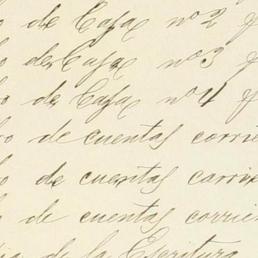 o de Caja nº 2 y
o de Caja nº 3 y
o de Caja nº 4 y
ro de cuentas corrie
o de cuentas corrie
o de cuentas corrien
de la Escritura